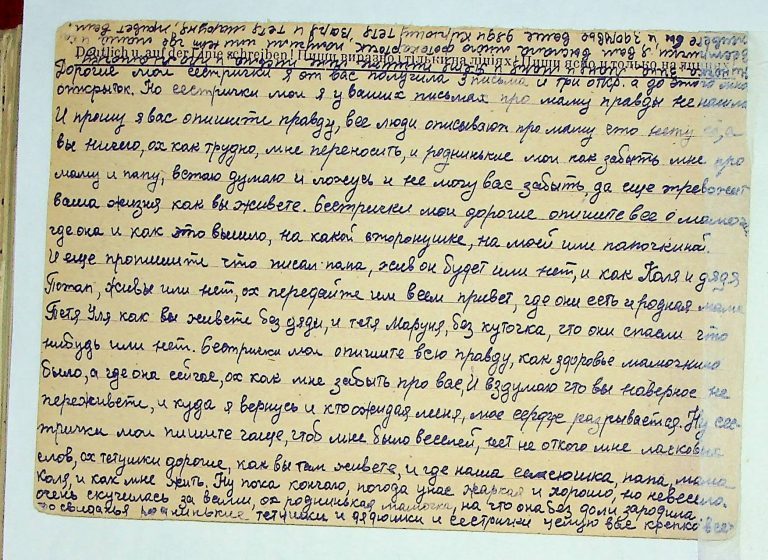 Deutlich u. auf der Linie schreiben! Пиши виразно і тільки на лініях! Пиши ясно и только на линиях!
Дорогие мои сестрички я от вас получила 3 письма и три откр. а до этого много
открыток. Но сестрички мои я у ваших письмах про маму правды не нашла
И прошу я вас опишите правду, все люди описывают про маму что нету её, а
вы ничего, ох как трудно, мне переносить, и роднинькие мои как забыть мне про
маму и папу, встаю думаю и ложусь и не могу вас забыть, да еще тревожит
ваша жизня как вы живете. Сестрички мои дорогие опишите все о мамочке
где она и как это вышло, на какой сторонушке, на моей или папочкиной.
И еще пропишите что писал папа, жив он будет или нет, и как Коля и дядя
Потап, живы или нет, ох передайте им всем привет, где они есть и родная мама
Тетя Уля как вы живете без дяди, и тетя Маруня, без куточка, что они спасли что
нибудь или нет. Сестрички мои опишите всю правду, как здоровье мамочкино
было, а где она сейчас, ох как мне забыть про вас, И вздумаю что вы наверное не
переживете, и куда я вернусь и кто ожидая меня, мое сердце разрывается. Ну сес-
трички мои пишите чаще, чтоб мне было веселей, нет не откого мне ласковых
слов, ох тетушки дорогие, как вы там живете, и где наша семсюшка, папа, мама
Коля, и как мне жить. Ну пока кончаю, погода у нас жаркая и хорошо, но невесело.
очень скучилась за всеми, ох роднинькая мамочка, на что она без доли зародила
до свиданья роднинькие тетушки и дядюшки и сестрички целую вас крепко всех